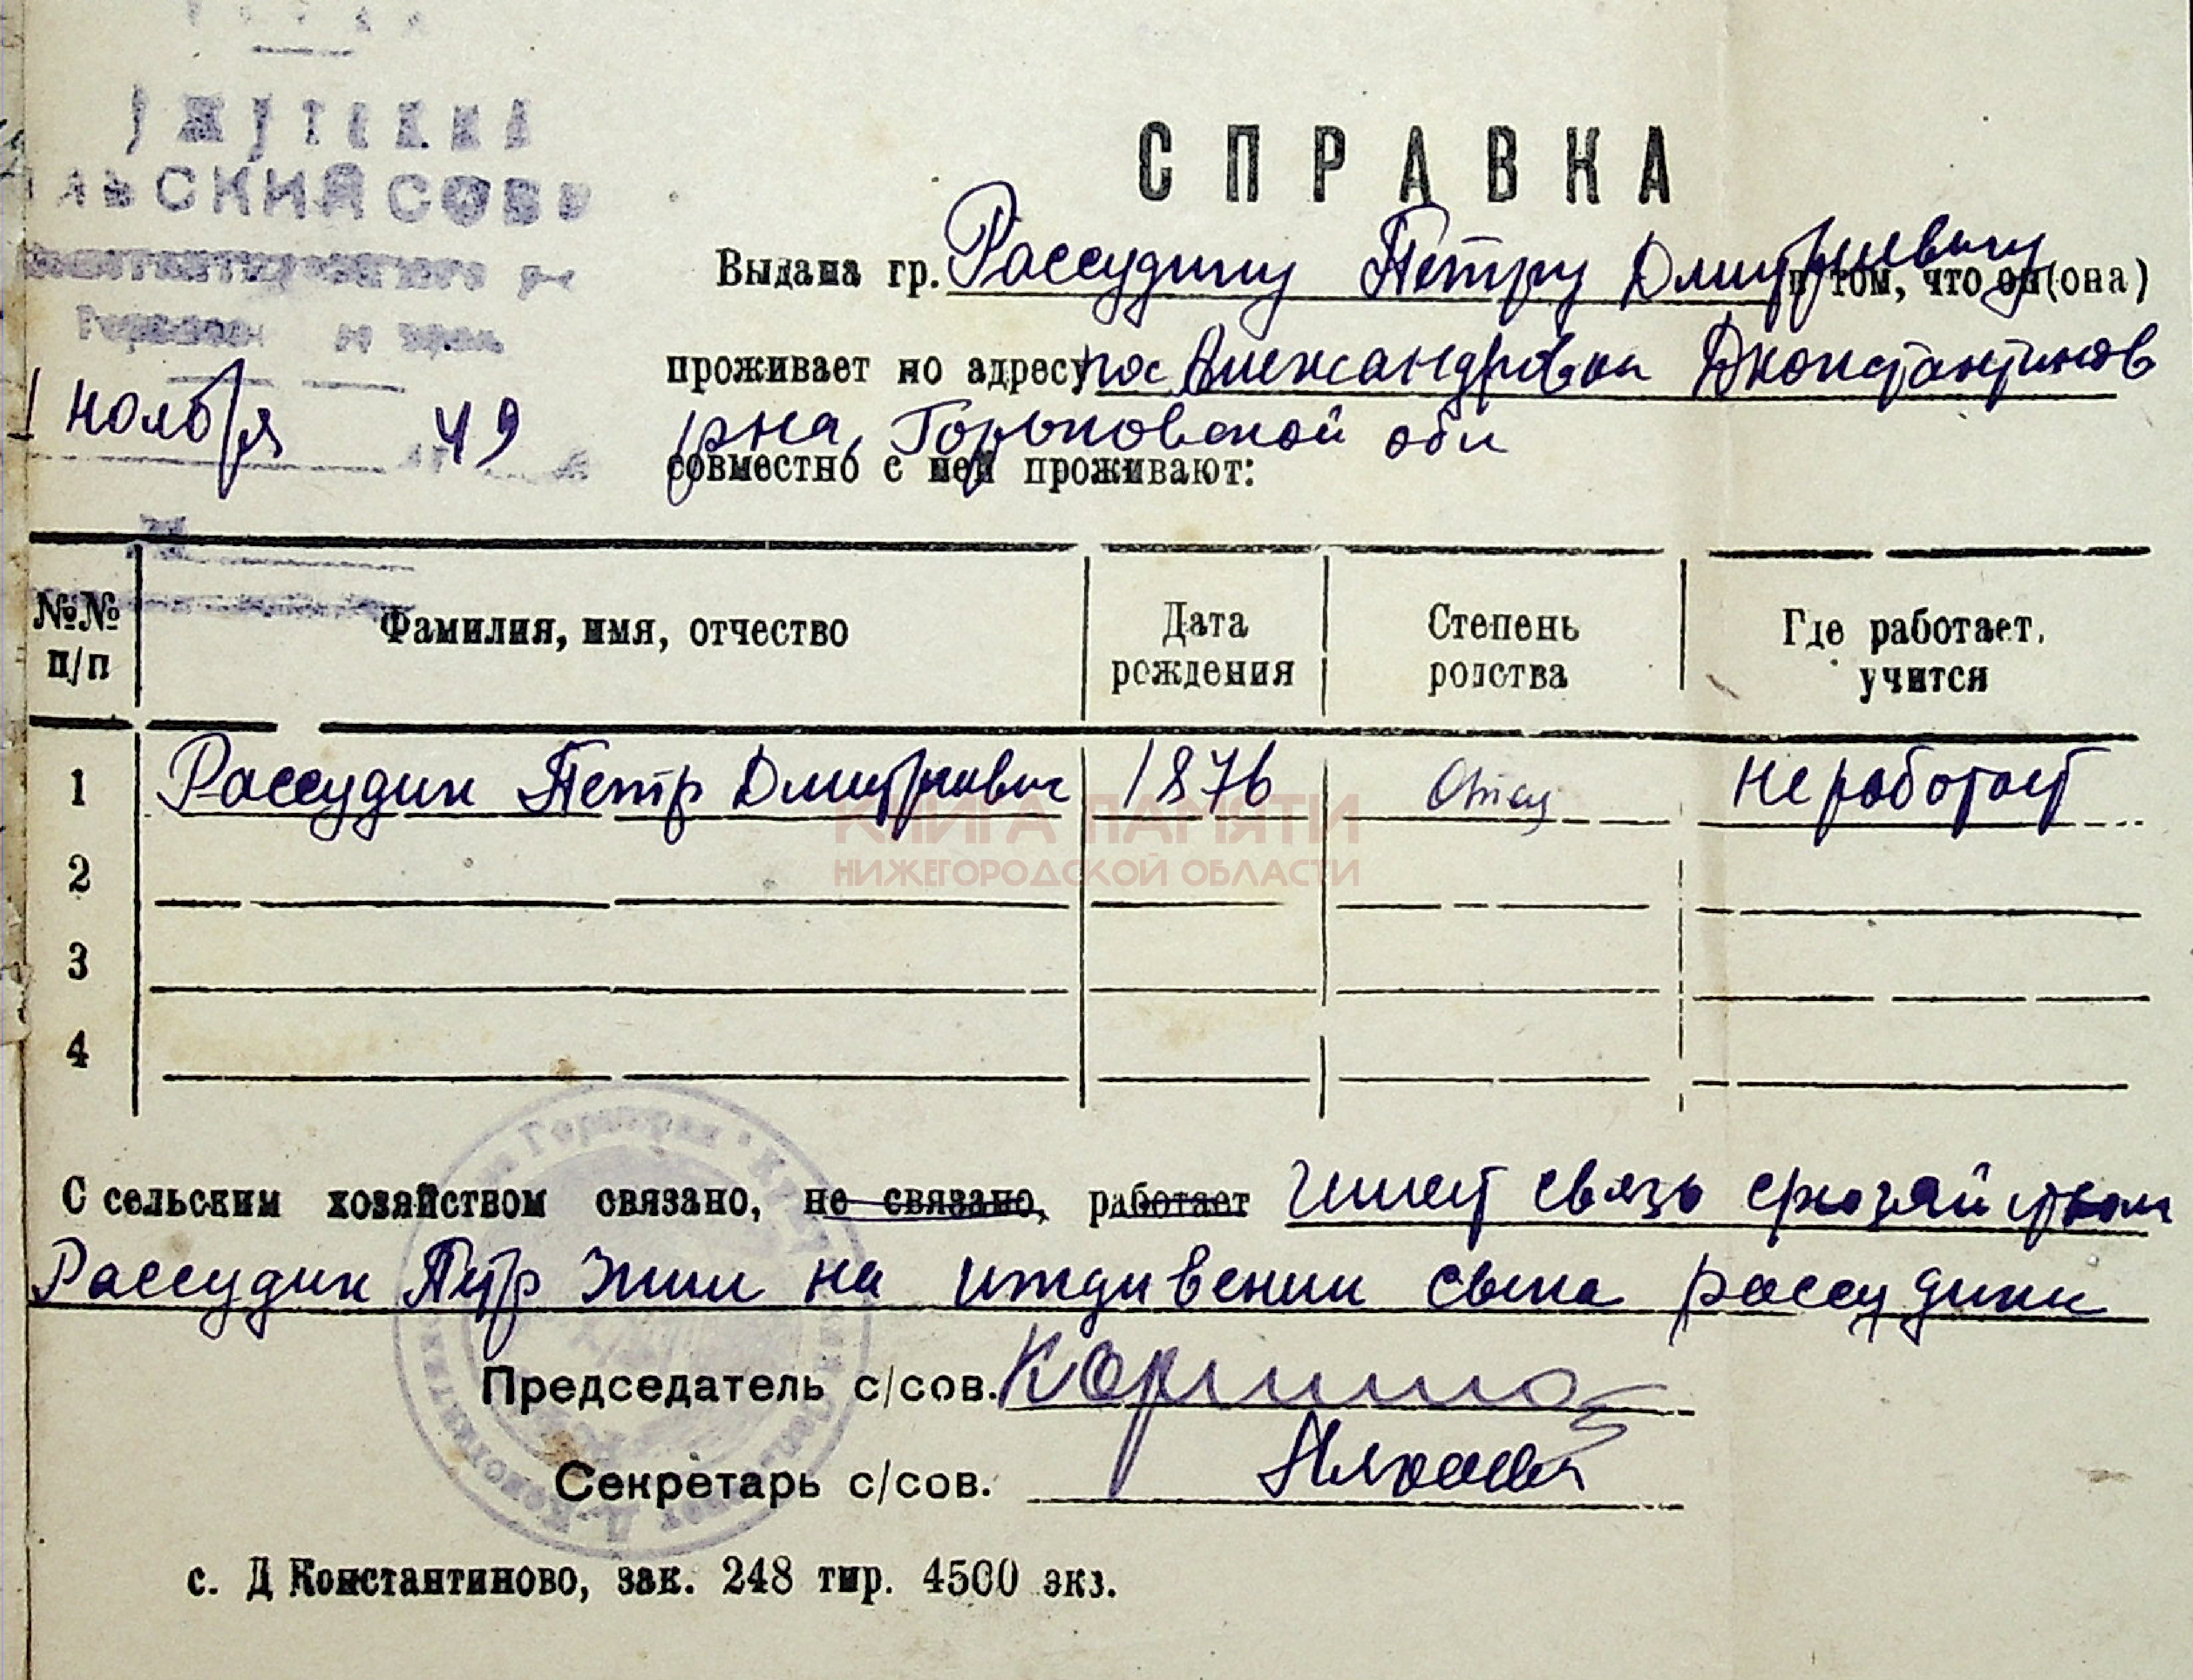 СПРАВКА
Выдана гр. Рассудину Петру Дмитриевичу в том, что он (она)
проживает по адресу пос Александровка Дконстантинов
рна, Горьковской обл
совместно с ней проживают:
СКИЙ СОВЕ
ноября 49
№№ п/п
Фамилия, имя, отчество
Дата рождения
Степень родства
Где работает, учится
1 Рассудин Петр Дмитриевич 1876 Отец не работает
2
3
4
С сельским хозяйством связано, не связано, работает имеет связь схозяйством
Рассудин Петр жил на иждивении сына рассудина
Председатель с/сов.
Секретарь с/сов.
с. Д Константиново, зак. 248 тир. 4500 экз.
КНИГА ПАМЯТИ
НИЖЕГОРОДСКОЙ ОБЛАСТИ